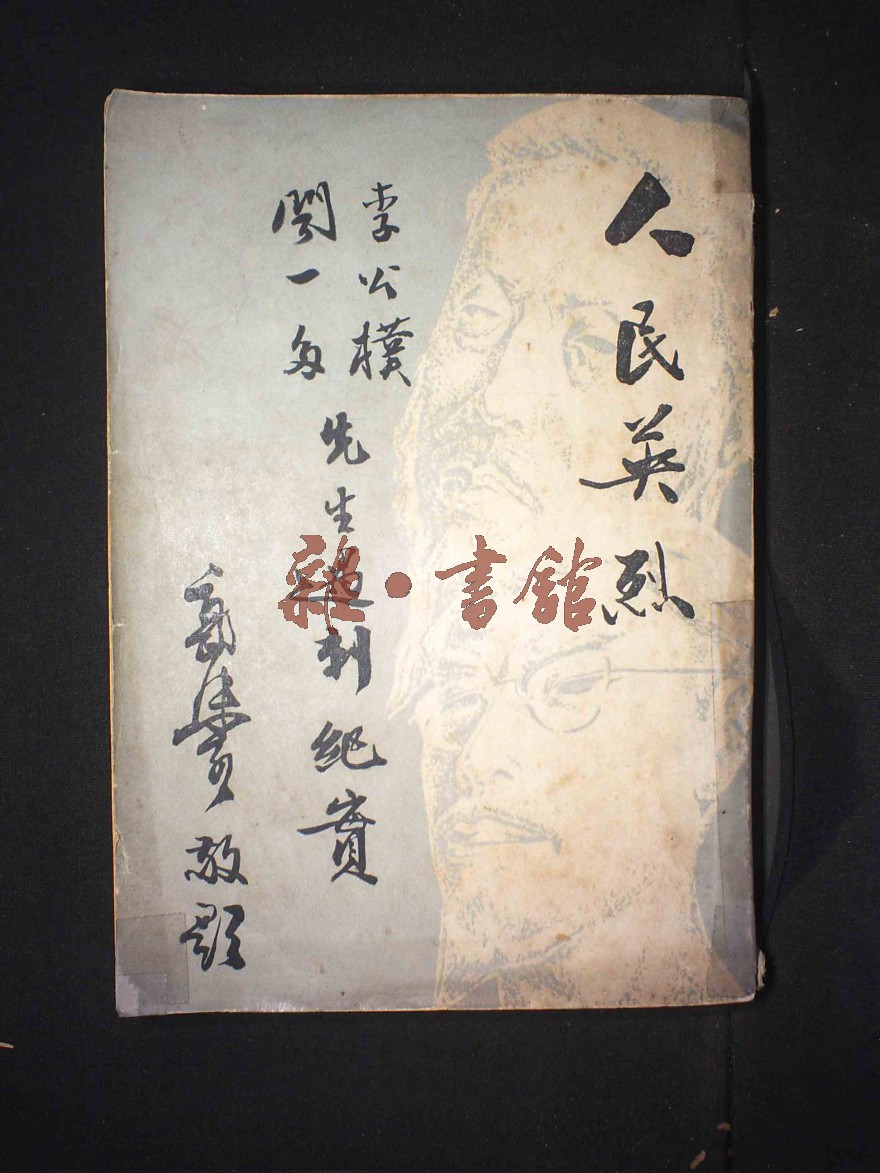 人民英烈
李公樸
聞一多
先生遇刺紀實
敬題
雜·書館